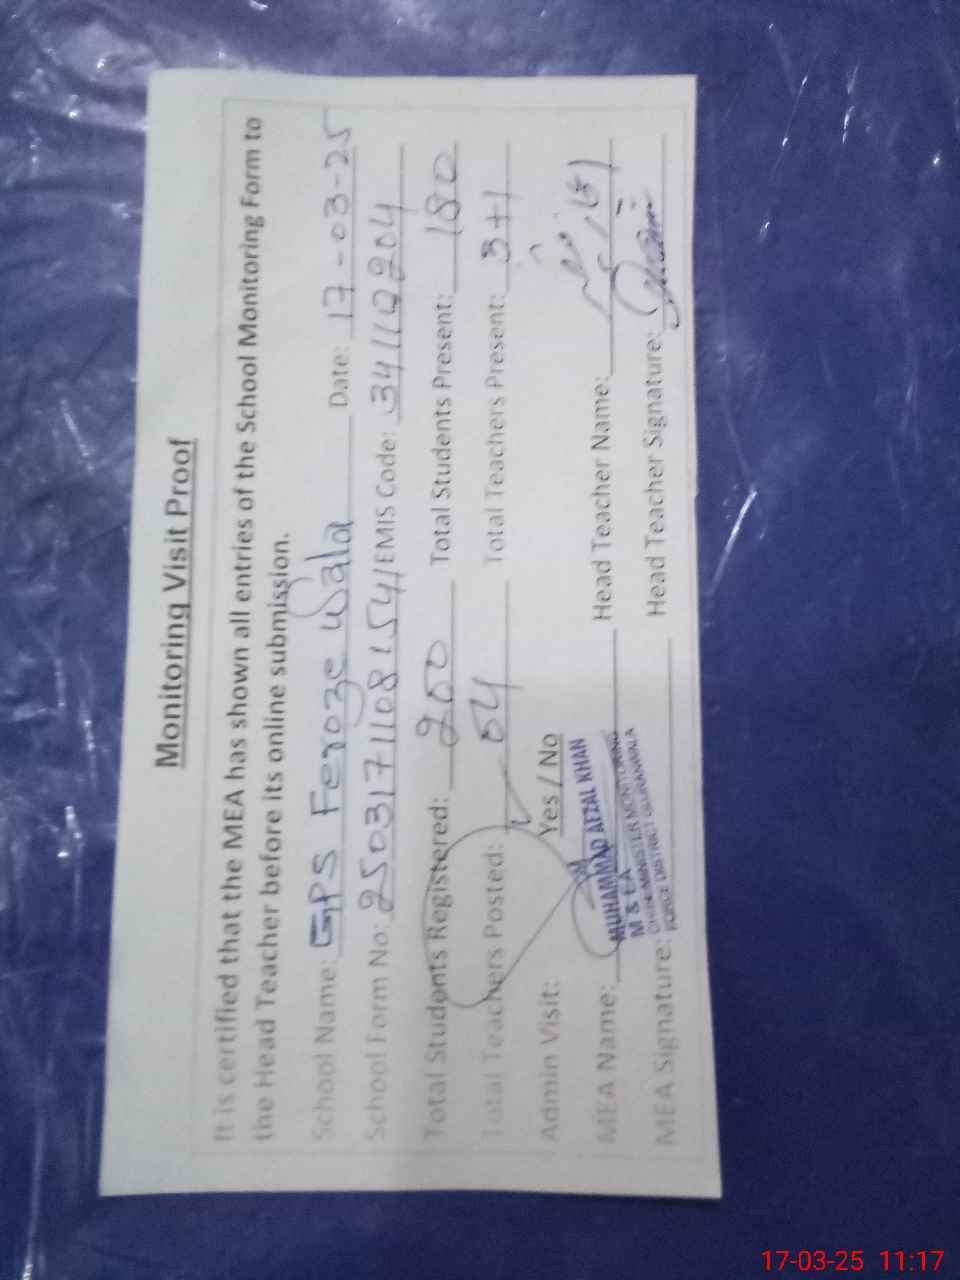 Monitoring Visit Proof
It is certified that the MEA has shown all entries of the School Monitoring Form to
the Head Teacher before its online submission.
School Name: GPS Feroze Wala Date: 17-03-25
School Form No: 25031711081541 EMIS Code: 34110204
Total Students Registered: 200 Total Students Present: 180
Total Teachers Posted: 04 Total Teachers Present: 3+1
Admin Visit: Yes / No
MEA Name: Head Teacher Name:
MUHAMMAD AFZAL KHAN
M & E A
CHIEF MINISTER MONITORING
FORCE DISTRICT GUJRANWALA
MEA Signature: Head Teacher Signature:
17-03-25 11:17